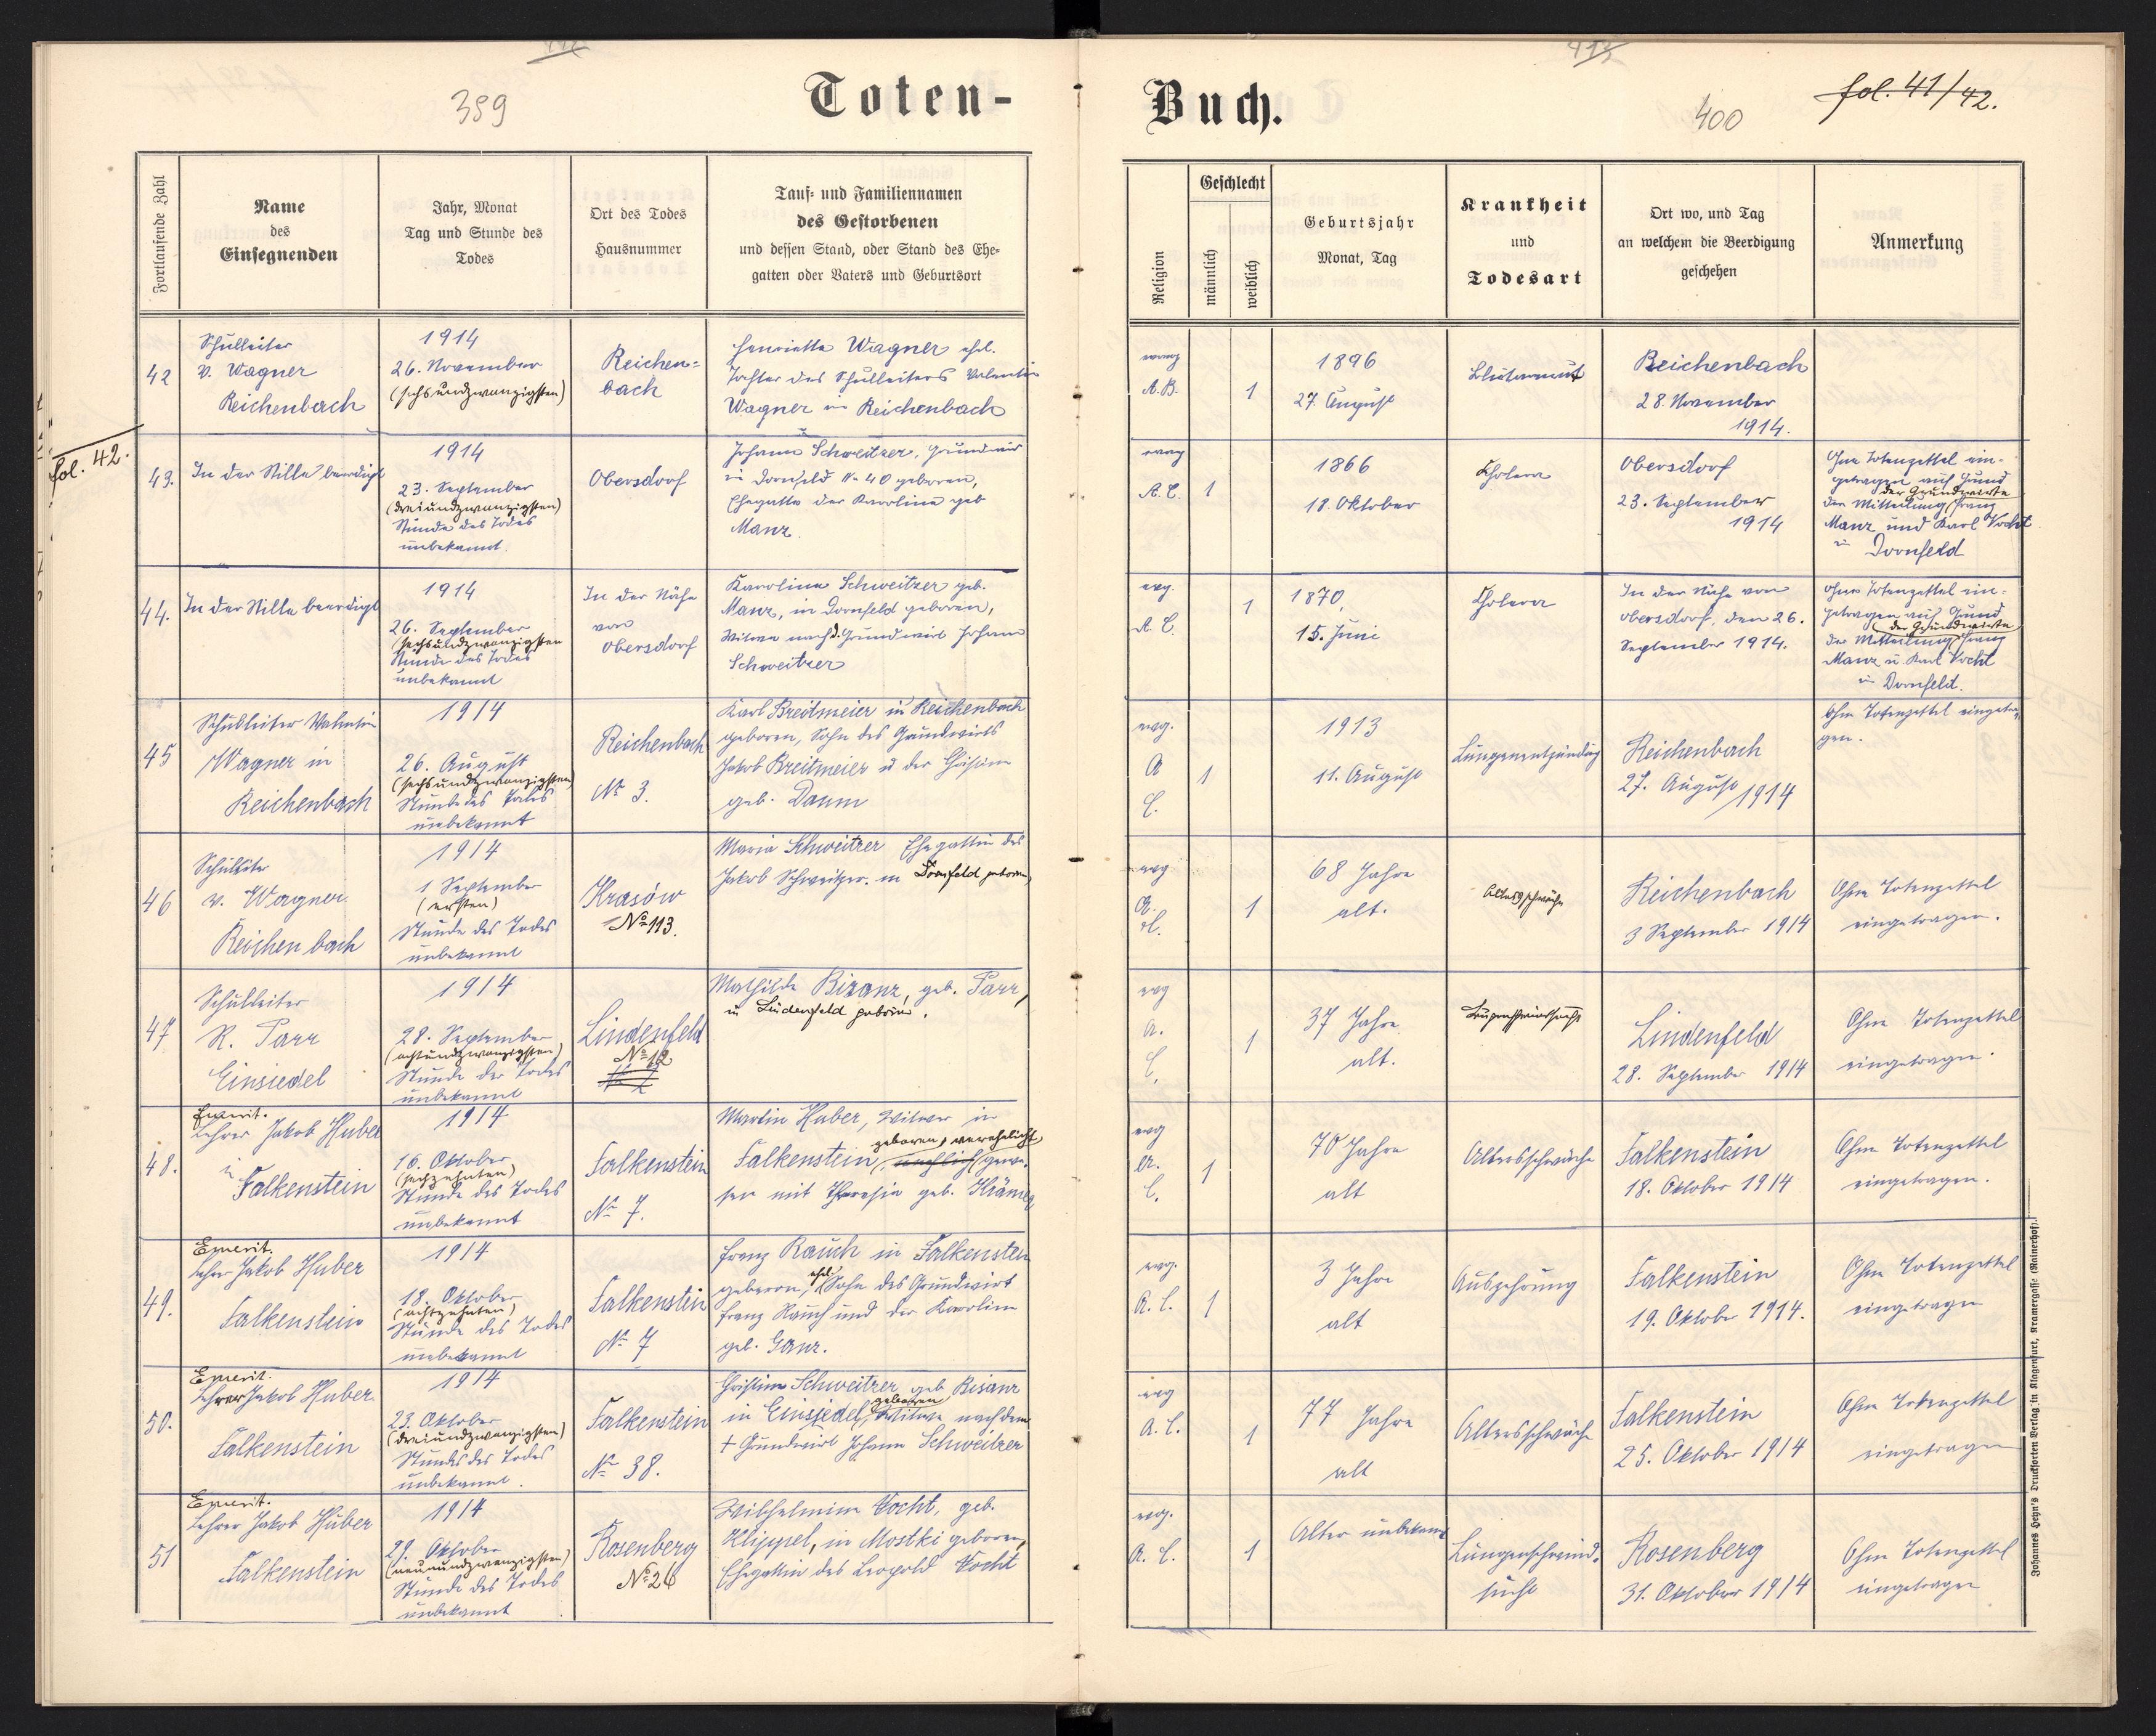 389
Toten-
Buch.
400
fol. 41/42.
fol. 42.
Fortlaufende Zahl
Name
des
Einsegnenden
Jahr, Monat
Tag und Stunde des
Todes
Ort des Todes
Hausnummer
Tauf- und Familiennamen
des Gestorbenen
und dessen Stand, oder Stand des Ehe-
gatten oder Vaters und Geburtsort
Religion
Geschlecht
männlich
weiblich
Geburtsjahr
Monat, Tag
Krankheit
und
Todesart
Ort wo, und Tag
an welchem die Beerdigung
geschehen
Anmerkung
42
Schulleiter
V. Wagner
Reichenbach
1914
26. November
(sechsundzwanzigsten)
Reichen=
bach
Henriette Wagner ehel.
Tochter des Schulleiters Valentin
Wagner in Reichenbach
evang
A.B.
1
1896
27. August
Blutarmut
Reichenbach
28. November
1914.
43.
In der Stille beerdigt
1914
23. September
(dreiundzwanzigsten)
Stunde des Todes
unbekannt.
Obersdorf
Johann Schweitzer, Grundwirt
in Dornfeld № 40 geboren,
Ehegatte der Karolina geb
Manz.
evang
A.C.
1
1866
18. Oktober
Cholera
Obersdorf
23. September
1914
Ohne Totenzettel ein-
getragen auf Grund
der Grundwirte
der Mitteilung Franz
Manz und Karl Vocht
in Dornfeld
44.
In der Stille beerdigt
1914
26. September
(sechsundzwanzigsten
Stunde des Todes
unbekannt
In der Nähe
von
Obersdorf
Karolina Schweitzer geb.
Manz, in Dornfeld geboren,
Witwe nach d. Grundwirt Johann
Schweitzer
evg.
A.C.
1
1870,
15. Juni
Cholera
In der Nähe von
Obersdorf, den 26.
September 1914.
Ohne Totenzettel ein-
getragen auf Grund
der Grundwirte
der Mitteilung Franz
Manz u. Karl Vocht
in Dornfeld.
45
Schulleiter Valentin
Wagner in
Reichenbach
1914
26. August
(sechsundzwanzigsten)
Stunde des Todes
unbekannt
Reichenbach
№ 3.
Karl Breitmeier in Reichenbach
geboren, Sohn des Grundwirts
Jakob Breitmeier u der Christine
geb. Daum
evg.
A
C.
1
1913
11. August
Lungenentzündung
Reichenbach
27. August 1914
Ohne Totenzettel eingetra-
gen.
46
Schulleiter
v. Wagner.
Reichenbach
1914
1 September
(ersten)
Stunde des Todes
unbekannt
Krasów
№ 113.
Maria Schweitzer Ehegattin des
Jakob Schweitzer. in Dornfeld geboren,
evg
A.
C.
1
68 Jahre
alt.
Altersschwäche
Reichenbach
3 September 1914
Ohne Totenzettel
eingetragen.
47
Schulleiter
R. Parr
Einsiedel
1914
28. September
(achtundzwanzigsten)
Stunde des Todes
unbekannt
Lindenfeld
№ 12
Mathilde Bisanz, geb. Parr,
in Lindenfeld geboren.
evg
A.
C.
1
37 Jahre
alt.
Lungenschwindsucht
Lindenfeld
28. September 1914
Ohne Totenzettel
eingetragen.
48.
Emerit.
Lehrer Jakob Huber
in
Falkenstein
1914
16. Oktober
(sechzehnten)
Stunde des Todes
unbekannt
Falkenstein
№ 7.
Martin Huber, Witwer in
geboren, verehelicht
Falkenstein, gewe-
sen mit Theresia geb.
evg
A.
C.
1
70 Jahre
alt
Altersschwäche
Falkenstein
18. Oktober 1914
Ohne Totenzettel
eingetragen.
49.
Emerit.
Lehrer Jakob Huber
Falkenstein
1914
18. Oktober
(achtzehnten)
Stunde des Todes
unbekannt
Falkenstein
№ 7
Franz Rauch in Falkenstein
geboren, ehel. Sohn des Grundwirt
Franz Rauch und der Karoline
geb. Ganz.
evg.
A.C.
1
3 Jahre
alt
Auszehrung
Falkenstein
19. Oktober 1914.
Ohne Totenzettel
eingetragen
50.
Emerit.
Lehrer Jakob Huber
Falkenstein
1914
23. Oktober
(dreiundzwanzigsten)
Stunde des Todes
unbekannt.
Falkenstein
№ 38.
Christine Schweitzer geb Bisanz
geboren
in Einsiedel, Witwe nach dem
+ Grundwirt Johann Schweitzer
evg
A.C.
1
77 Jahre
alt
Altersschwäche
Falkenstein
25. Oktober 1914
Ohne Totenzettel
eingetragen
51
Emerit.
Lehrer Jakob Huber
Falkenstein
1914
29. Oktober
(neunundzwanzigsten)
Stunde des Todes
unbekannt
Rosenberg
№ 26
Wilhelmine Vocht, geb.
Klippel, in Mostki geboren,
Ehegattin des Leopold Vocht
evg.
A.C.
1
Alter unbekannt
Lungenschwind-
sucht
Rosenberg
31. Oktober 1914
Ohne Totenzettel
eingetragen
Johannes Heyn's Drucksorten Verlag in Klagenfurt, Kramergasse (Rainerhof).